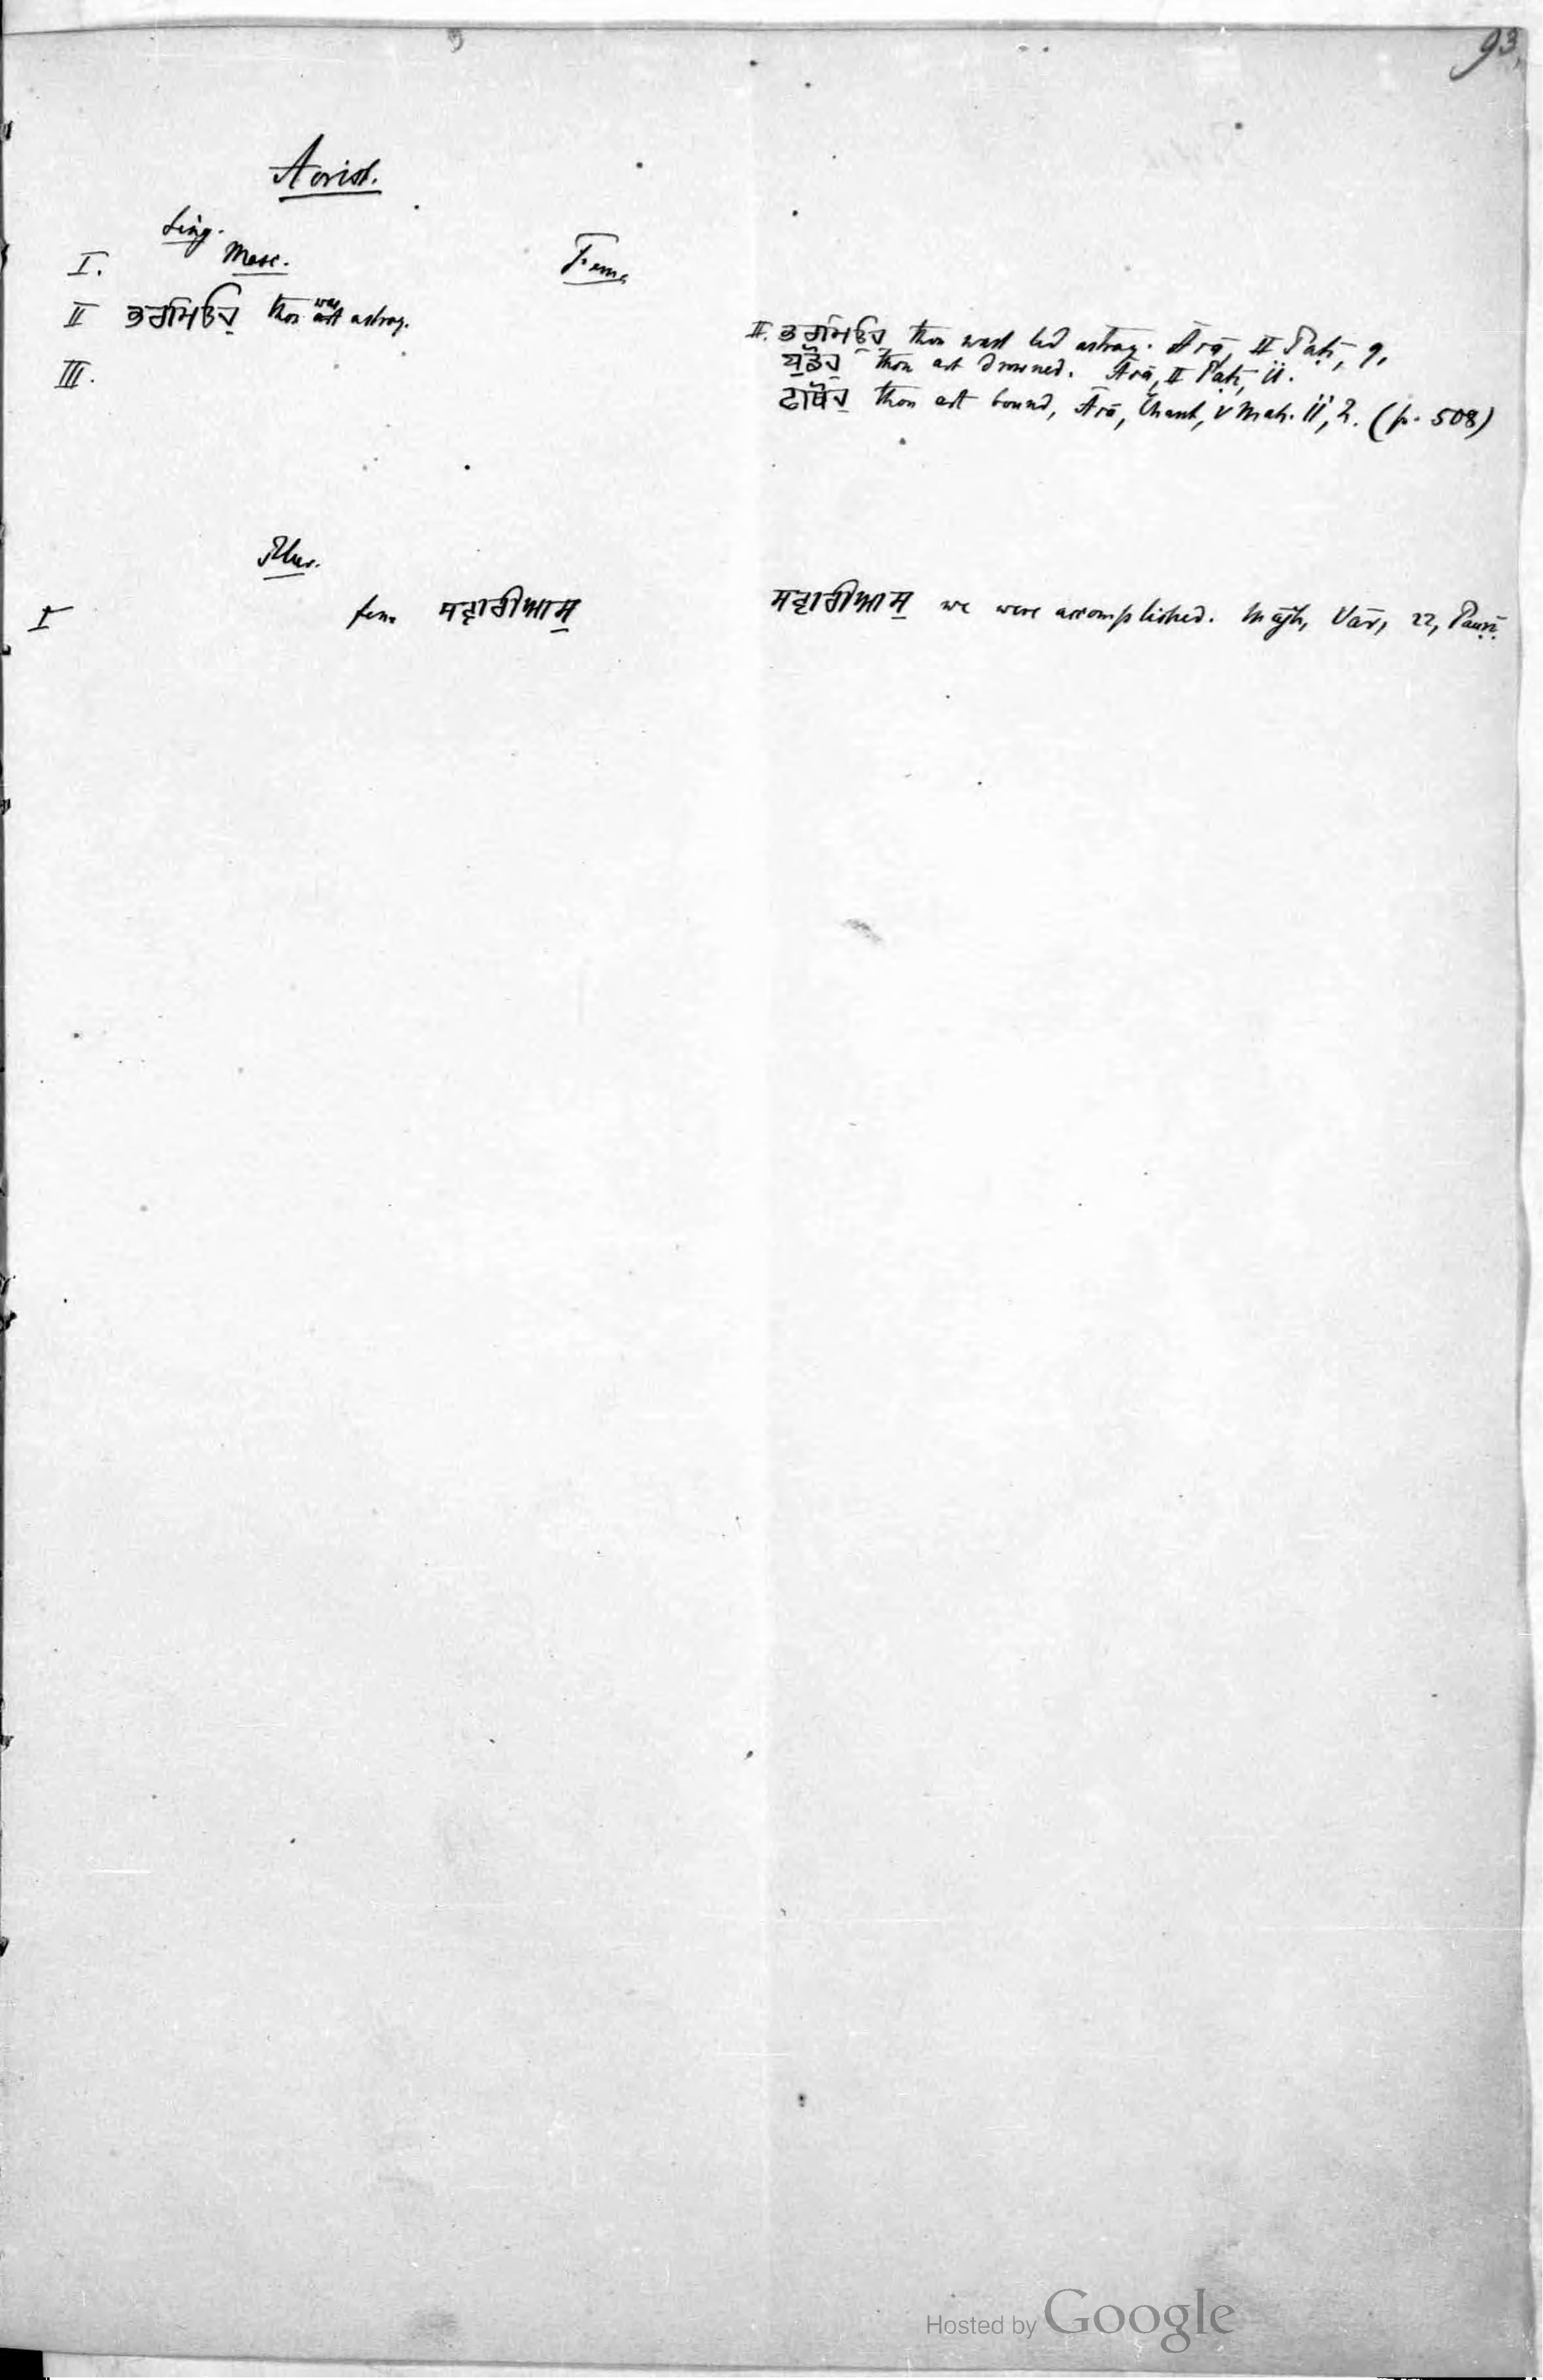 93.
Aorist.
Sing.
I. Masc. Fem.
II ਭਰਮਿਓਹੁ thou wast art astray.
III.
II. ਭਰਮਿਓਹੁ thou wast led astray. Āsā, II Paṭī, 9.
ਬੁਡੋਹੁ thou art drowned. Āsā, II Paṭī, 11.
ਫਾਥੋਹੁ thou art bound, Āsā, Chant, V Mah. 11, 2. (p. 508)
Plur.
I fem. ਸਵਾਰੀਆਸੁ
ਸਵਾਰੀਆਸੁ we were accomplished. Mājh, Vār, 22, Pauṛī.
Hosted by Google